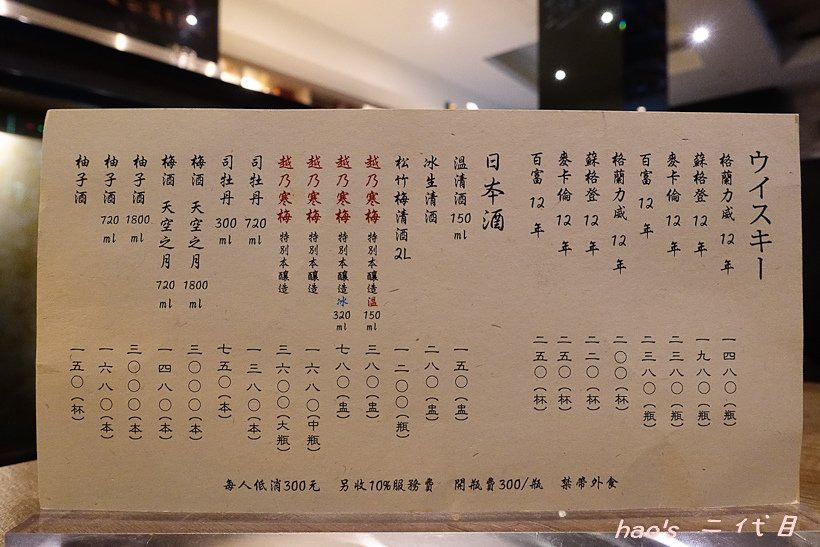 ウイスキー
格蘭力威 12年 一四八〇(瓶)
蘇格登 12年 一九八〇(瓶)
麥卡倫 12年 二三八〇(瓶)
百富 12年 二三八〇(瓶)
格蘭力威 12年 二〇〇(杯)
蘇格登 12年 二二〇(杯)
麥卡倫 12年 二五〇(杯)
百富 12年 二五〇(杯)
日本酒
温清酒 150ml 一五〇(盅)
冰生清酒 二八〇(盅)
松竹梅清酒 2L 一二〇〇(瓶)
越乃寒梅 特別本釀造 温 150ml 三八〇(盅)
越乃寒梅 特別本釀造 冰 320ml 七八〇(盅)
越乃寒梅 特別本釀造 一六八〇(中瓶)
越乃寒梅 特別本釀造 三六〇〇(大瓶)
司牡丹 720ml 一三八〇(本)
司牡丹 300ml 七五〇(本)
梅酒 天空之月 1800ml 三〇〇〇(本)
梅酒 天空之月 720ml 一四八〇(本)
柚子酒 1800ml 三〇〇〇(本)
柚子酒 720ml 一六八〇(本)
柚子酒 一五〇(杯)
每人低消300元 另收10%服務費 開瓶費300/瓶 禁帶外食
hao's 二代目